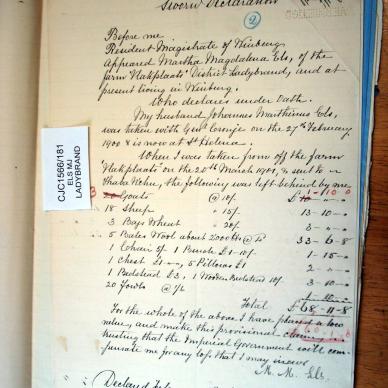 Sworn Declaration
2
Before me
Resident Magistrate of Winburg
Appeared Martha Magdalena Els, of the
farm Vlakplaats District Ladybrand, and at
present living in Winburg.
Who declares under Oath.
My husband Johannes Marthinus Els,
was taken with Genl Cronje on the 27th February
1900 & is now at St Helena.
When I was taken from off the farm
Vlakplaats on the 20th March 1901, & sent to
Thaba Nchu, the following was left behind by me
3 Goats @ 10/- £ 1-10-0
18 Sheep " 15/- 13-10-"
3 Bags Wheat " 20/- 3-"-"
5 Bales Wool about 2000 lbs @ 33-6-8
1 Chair 5/- 1 Bench £1-10/- 1-15-"
1 Chest £1-"-", 5 Pillows £1 2-"-"
1 Bedstead £3, 1 Wooden Bedstead 10/- 3-10-"
20 Fowls @ 1/6 1-10-"
Total £68-11-8
For the whole of the above I have placed a low
value, and make this provisional claim,
trusting that the Imperial Government will com-
pensate me for any loss that I may incur
M. M. Els.
Declared
CJC1566/181
ELS MM
LADYBRAND